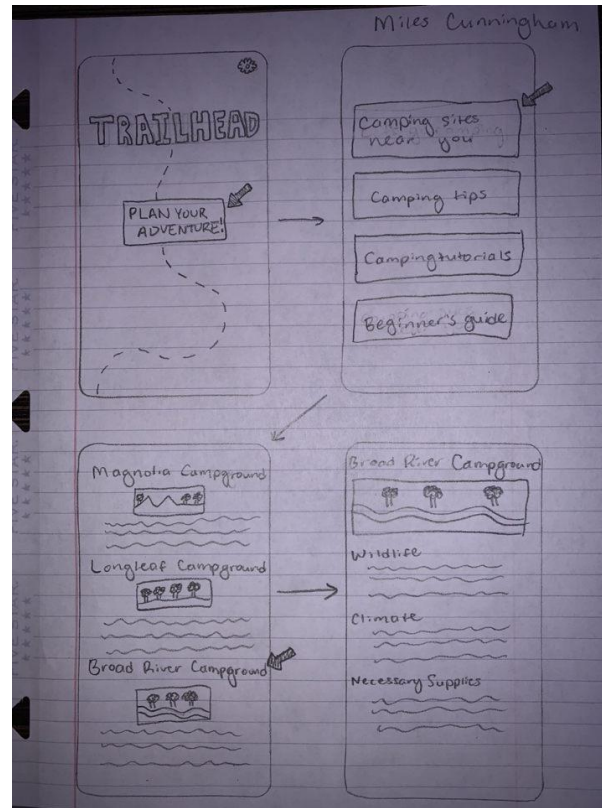 Miles Cunningham
TRAILHEAD
PLAN YOUR
ADVENTURE!
Camping sites
near you
Camping tips
Camping tutorials
Beginner's guide
Magnolia Campground
Longleaf Campground
Broad River Campground
Broad River Campground
Wildlife
Climate
Necessary Supplies
FIVE STAR
FIVE STAR